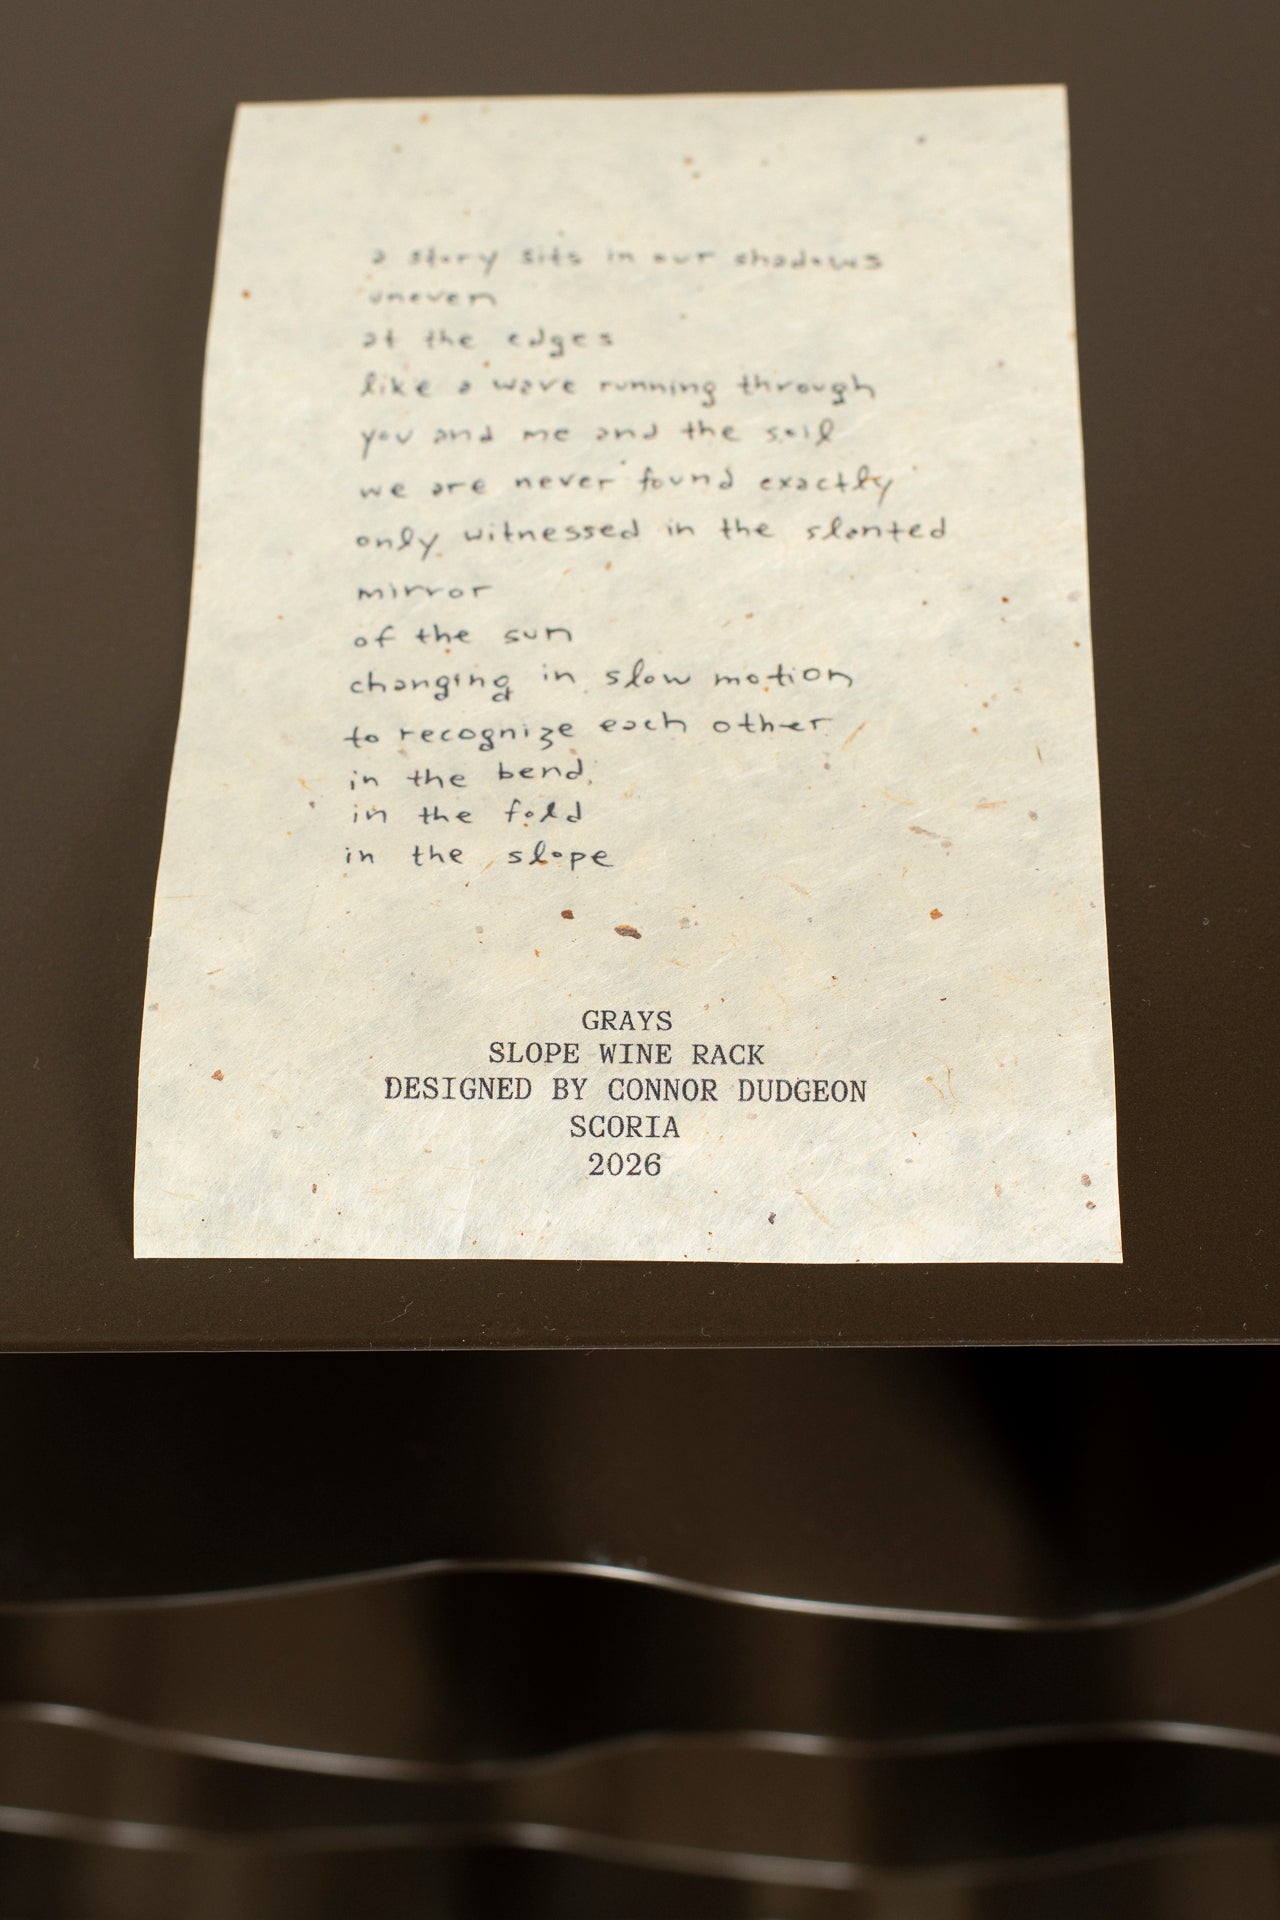 a story sits in our shadows
uneven
at the edges
like a wave running through
you and me and the soil
we are never found exactly
only witnessed in the slanted
mirror
of the sun
changing in slow motion
to recognize each other
in the bend
in the fold
in the slope
GRAYS
SLOPE WINE RACK
DESIGNED BY CONNOR DUDGEON
SCORIA
2026